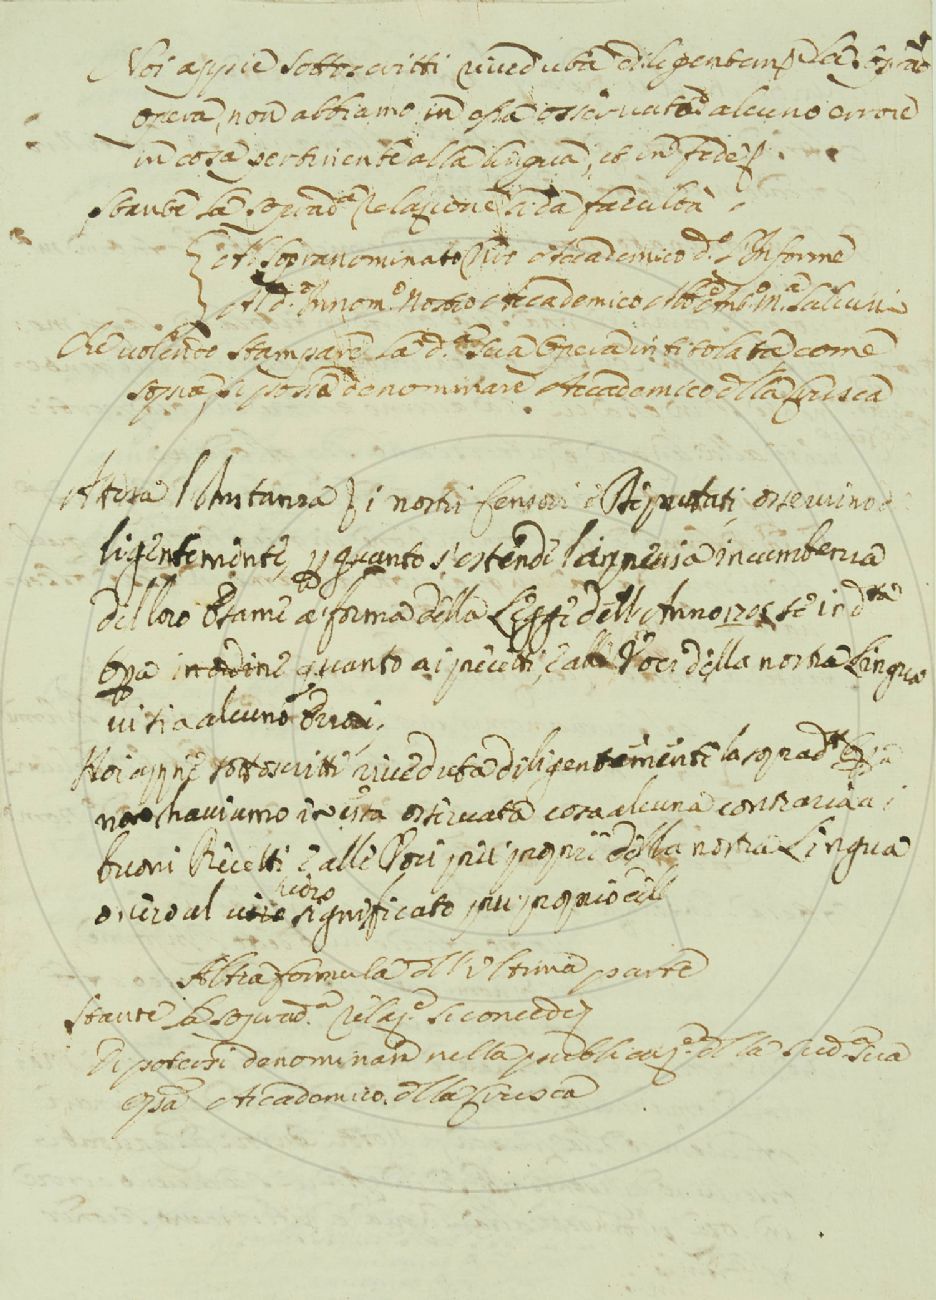 Noi appiè sottoscritti riveduta diligentem. la soprad.
opera, non abbiamo in essa osservato alcuno errore
in cosa pertinente alla lingua, et in fede
Stante la soprad.ª Relazione si dà facultà
Al sopranominato Nro Accademico d.º l'Informe
Al d.º Innom.º Nostro Accademico Ab.
Che volendo stampare la d.ª sua Opera intitolata come
sopra si possa denominare Accademico della Crusca
Attesa l'Instanza i nostri Censori e Deputati osservino di
ligentemente, p quanto s'estende l'incumbenza
del loro Esame a forma della Legge dell'Anno 1705 se in d.ta
Opa in ordine quanto ai precetti, e alle Voci della nostra Lingua
vi sia alcuno Errore
Noi appiè sottoscritti riveduta diligentemente la soprad.ta Opa
non haviamo in essa osservata cosa alcuna contraria ai
buoni Precetti e alle Voci più proprie della nostra Lingua
overo al vero significato più proprio
Altra formula dell'Ultima parte
Stante la soprad.ª Relaz.e si concede
Di potersi denominare nella pubblicaz.e della sud.ª sua
opa Accademico della Crusca